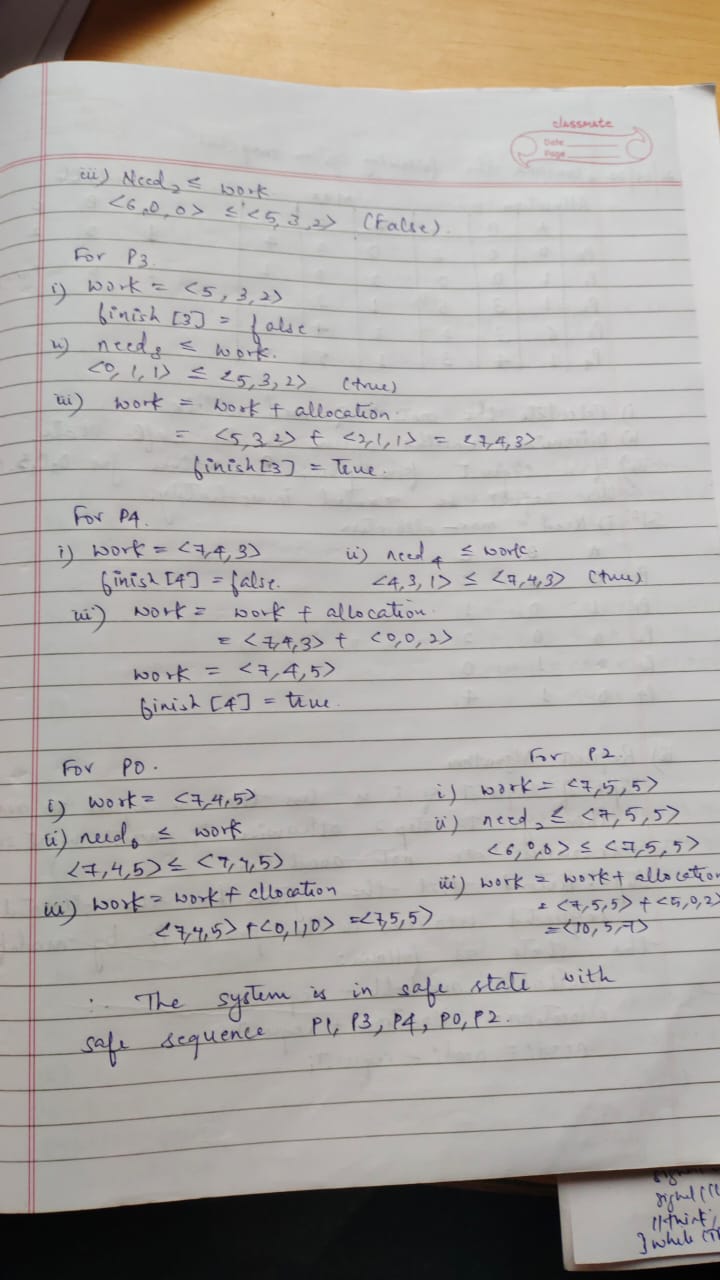 classmate
Date
Page
iii) Need₂ ≤ work
<6,0,0> ≤ <5,3,2> (False).
For P3.
i) work = <5,3,2>
finish [3] = false.
ii) need₃ ≤ work.
<0,1,1> ≤ <5,3,2> (true)
iii) work = work + allocation.
= <5,3,2> + <2,1,1> = <7,4,3>
finish[3] = True.
For P4.
i) work = <7,4,3>
finish [4] = false.
ii) need₄ ≤ work.
<4,3,1> ≤ <7,4,3> (true)
iii) work = work + allocation.
= <7,4,3> + <0,0,2>
work = <7,4,5>
finish [4] = true.
For P0.
i) work = <7,4,5>
ii) need₀ ≤ work
<7,4,5> ≤ <7,4,5>
iii) work = work + allocation
<7,4,5> + <0,1,0> = <7,5,5>
For P2.
i) work = <7,5,5>
ii) need₂ ≤ <7,5,5>
<6,0,0> ≤ <7,5,5>
iii) work = work + allocation
= <7,5,5> + <5,0,2>
= <10,5,7>
∴ The system is in safe state with
safe sequence P1, P3, P4, P0, P2.
//think;
} while (T